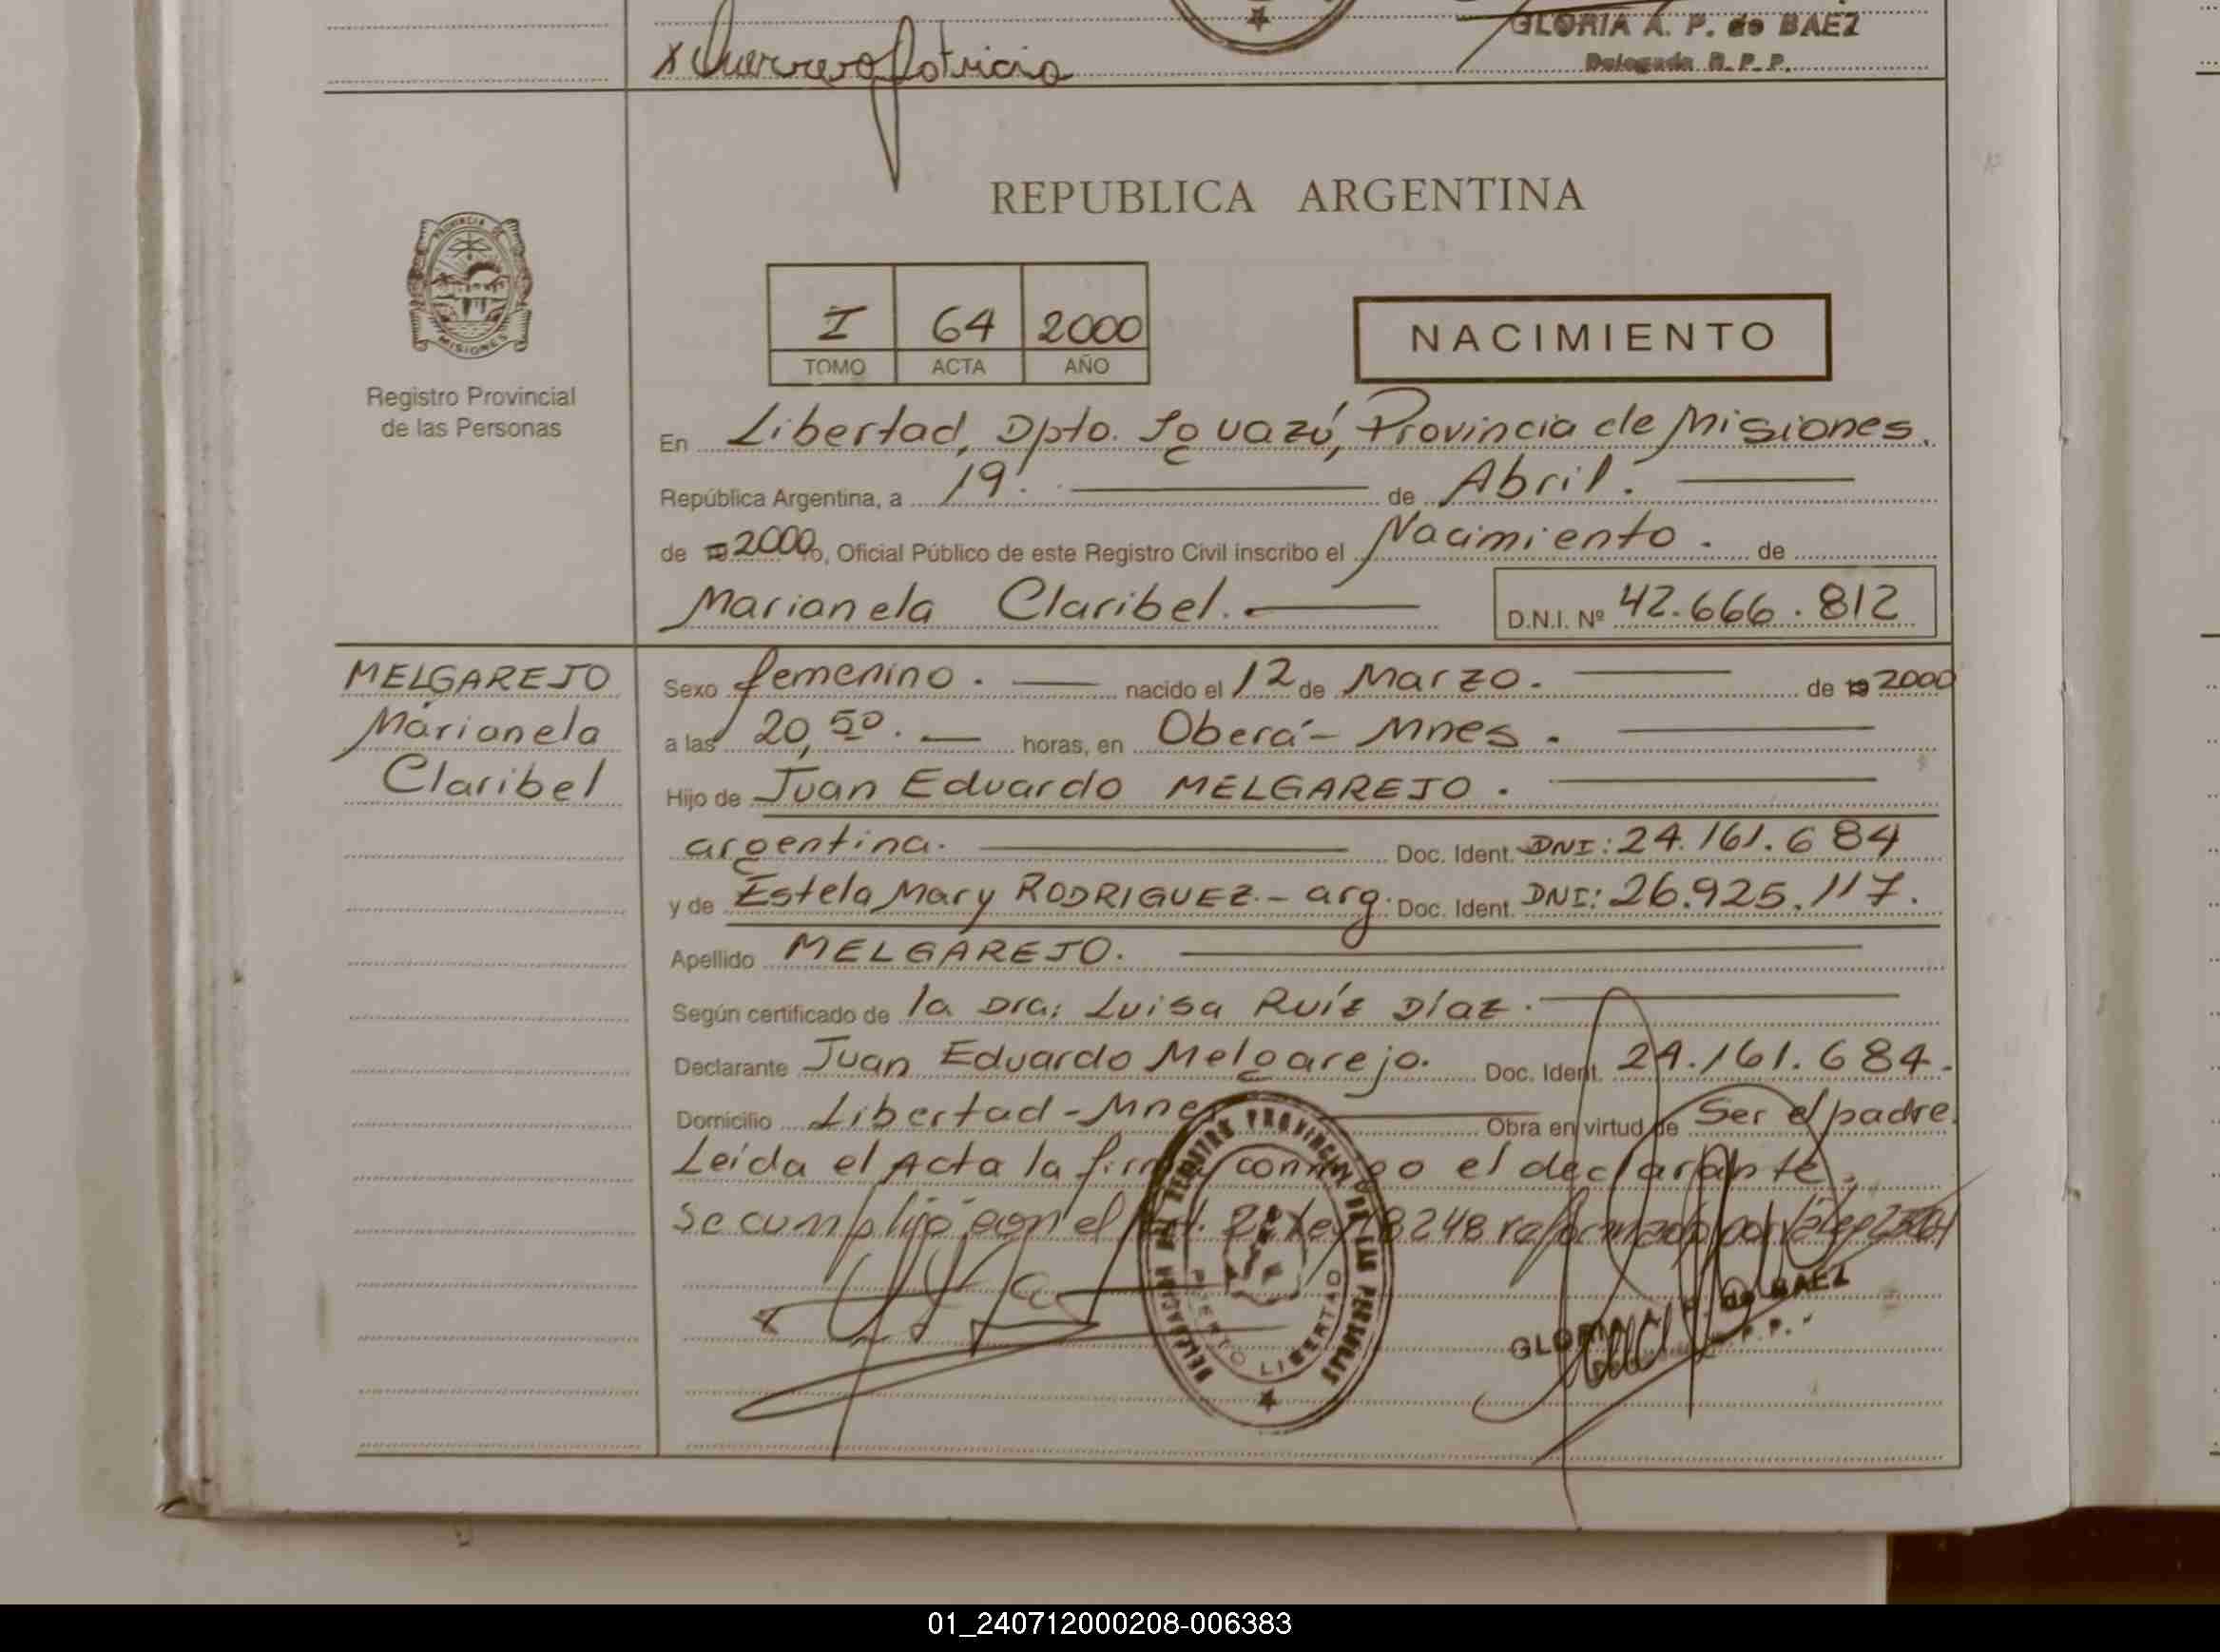 GLORIA A. P. de BAEZ
Delegada R. P. P.
REPUBLICA ARGENTINA
PROVINCIA DE
MISIONES
Registro Provincial
de las Personas
I 64 2000
TOMO ACTA AÑO
NACIMIENTO
En Libertad, Dpto. Iguazú, Provincia de Misiones.
República Argentina, a 19. de Abril.
de 19 2000, Oficial Público de este Registro Civil inscribo el Nacimiento. de
Marianela Claribel. D.N.I. Nº 42.666.812
MELGAREJO
Marianela
Claribel
Sexo femenino. nacido el 12 de Marzo. de 19 2000
a las 20,50. horas, en Oberá - Mnes.
Hijo de Juan Eduardo MELGAREJO.
argentina. Doc. Ident. DNI: 24.161.684
y de Estela Mary RODRIGUEZ.- arg. Doc. Ident. DNI: 26.925.117.
Apellido MELGAREJO.
Según certificado de la Dra: Luisa Ruíz Díaz.
Declarante Juan Eduardo Melgarejo. Doc. Ident. 24.161.684.
Domicilio Libertad - Mnes Obra en virtud de Ser el padre.
Leida el Acta la firma conmigo el declarante.
Se cumplió con el Art. Ley 18248 reformado por
DELEGACION DEL REGISTRO PROVINCIAL DE LAS PERSONAS
PUERTO LIBERTAD
GLORIA A. P. de BAEZ
01_240712000208-006383